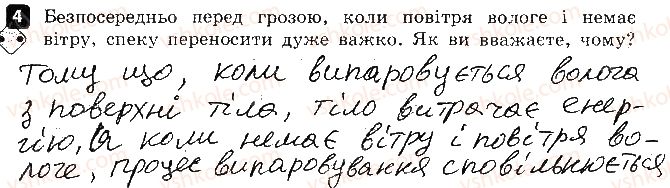 4 Безпосередньо перед грозою, коли повітря вологе і немає
вітру, спеку переносити дуже важко. Як ви вважаєте, чому?
Тому що, коли випаровується волога
з поверхні тіла, тіло витрачає енер-
гією, а коли немає вітру і повітря во-
логе, процес випаровування сповільнюється